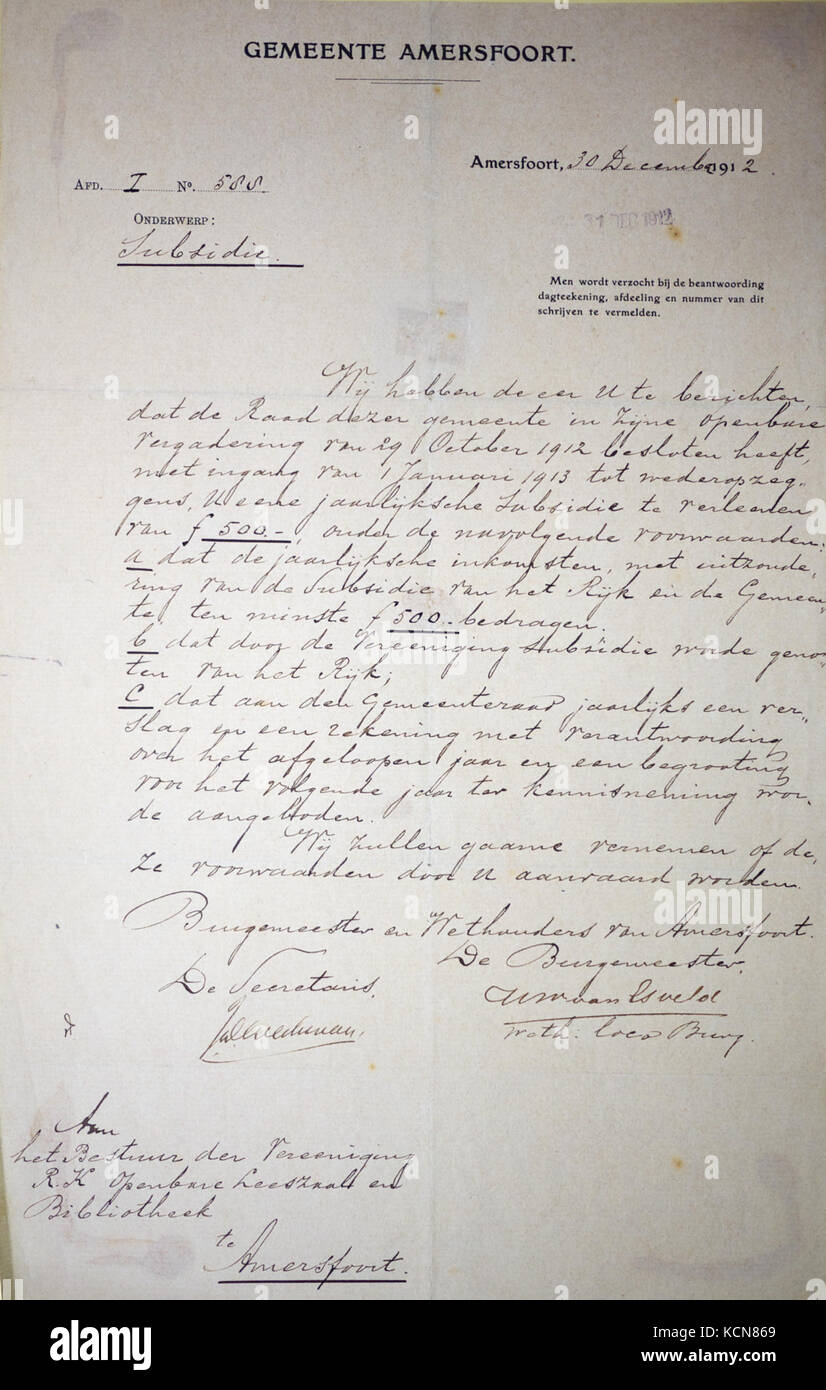 GEMEENTE AMERSFOORT.
Amersfoort, 30 December 1912.
AFD. I No. 588.
31 DEC 1912
ONDERWERP:
Subsidie.
Men wordt verzocht bij de beantwoording
dagteekening, afdeeling en nummer van dit
schrijven te vermelden.
Wij hebben de eer U te berichten,
dat de Raad dezer gemeente in zijne openbare
vergadering van 29 October 1912 besloten heeft,
met ingang van 1 Januari 1913 tot wederopzeg-
gens, U eene jaarlijksche subsidie te verleenen
van f 500.-, onder de navolgende voorwaarden:
a dat de jaarlijksche inkomsten, met uitzonde-
ring van de Subsidie van het Rijk en de Gemeen-
te, ten minste f 500.- bedragen.
b dat door de Vereeniging subsidie worde geno-
ten van het Rijk;
c dat aan den Gemeenteraad jaarlijks een ver-
slag en een rekening met verantwoording
over het afgeloopen jaar en een begrooting
voor het volgende jaar ter kennisneming wor-
de aangeboden.
Wij zullen gaarne vernemen of de-
ze voorwaarden door U aanvaard worden.
Burgemeester en Wethouders van Amersfoort.
De Secretaris, De Burgemeester,
van Esveld
weth: loco Burg.
Aan
het Bestuur der Vereeniging
R.K. Openbare Leeszaal en
Bibliotheek
te
Amersfoort.
alamy
alamy stock photo
KCN869
www.alamy.com